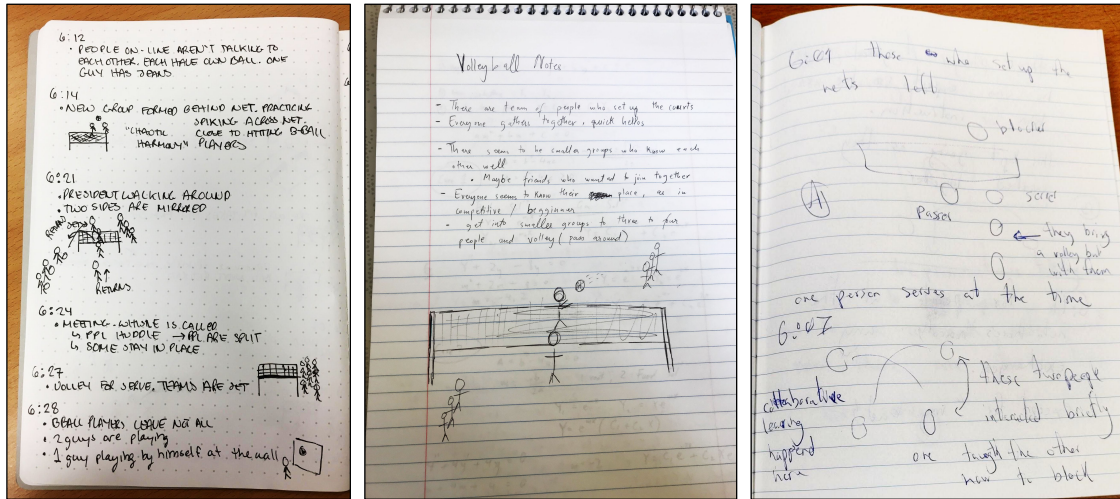 6:12
• PEOPLE ON-LINE AREN'T TALKING TO
EACH OTHER. EACH HAVE OWN BALL. ONE
GUY HAS JEANS
6:14
• NEW GROUP FORMED BEHIND NET. PRACTICING
SPIKING ACROSS NET.
"CHAOTIC CLOSE TO HITTING B-BALL
HARMONY" PLAYERS
6:21
• PRESIDENT WALKING AROUND
• TWO SIDES ARE MIRRORED
RETURNS
6:24
• MEETING-WHOLE IS CALLED
↳ PPL HUDDLE → PPL ARE SPLIT
↳ SOME STAY IN PLACE
6:27
• VOLLEY FOR SERVE, TEAMS ARE SET
6:28
• BBALL PLAYERS LEAVE NOT ALL
• 2 guys are playing
• 1 guy playing by himself at the wall
Volleyball Notes
- There are team of people who set up the courts
- Everyone gathers together, quick hellos
- There seem to be smaller groups who know each
other well
• Maybe friends who wanted to join together
- Everyone seems to know their place, as in
competitive / begginner
- get into smaller groups to three to four
people and volley (pass around)
6:04 those who set up the
nets left
blocker
A
Passes
they bring
a volley but
with them
one person serves at the time
6:07
collaborative
learing
happend
here
these two people
interacted briefly
one taught the other
how to block